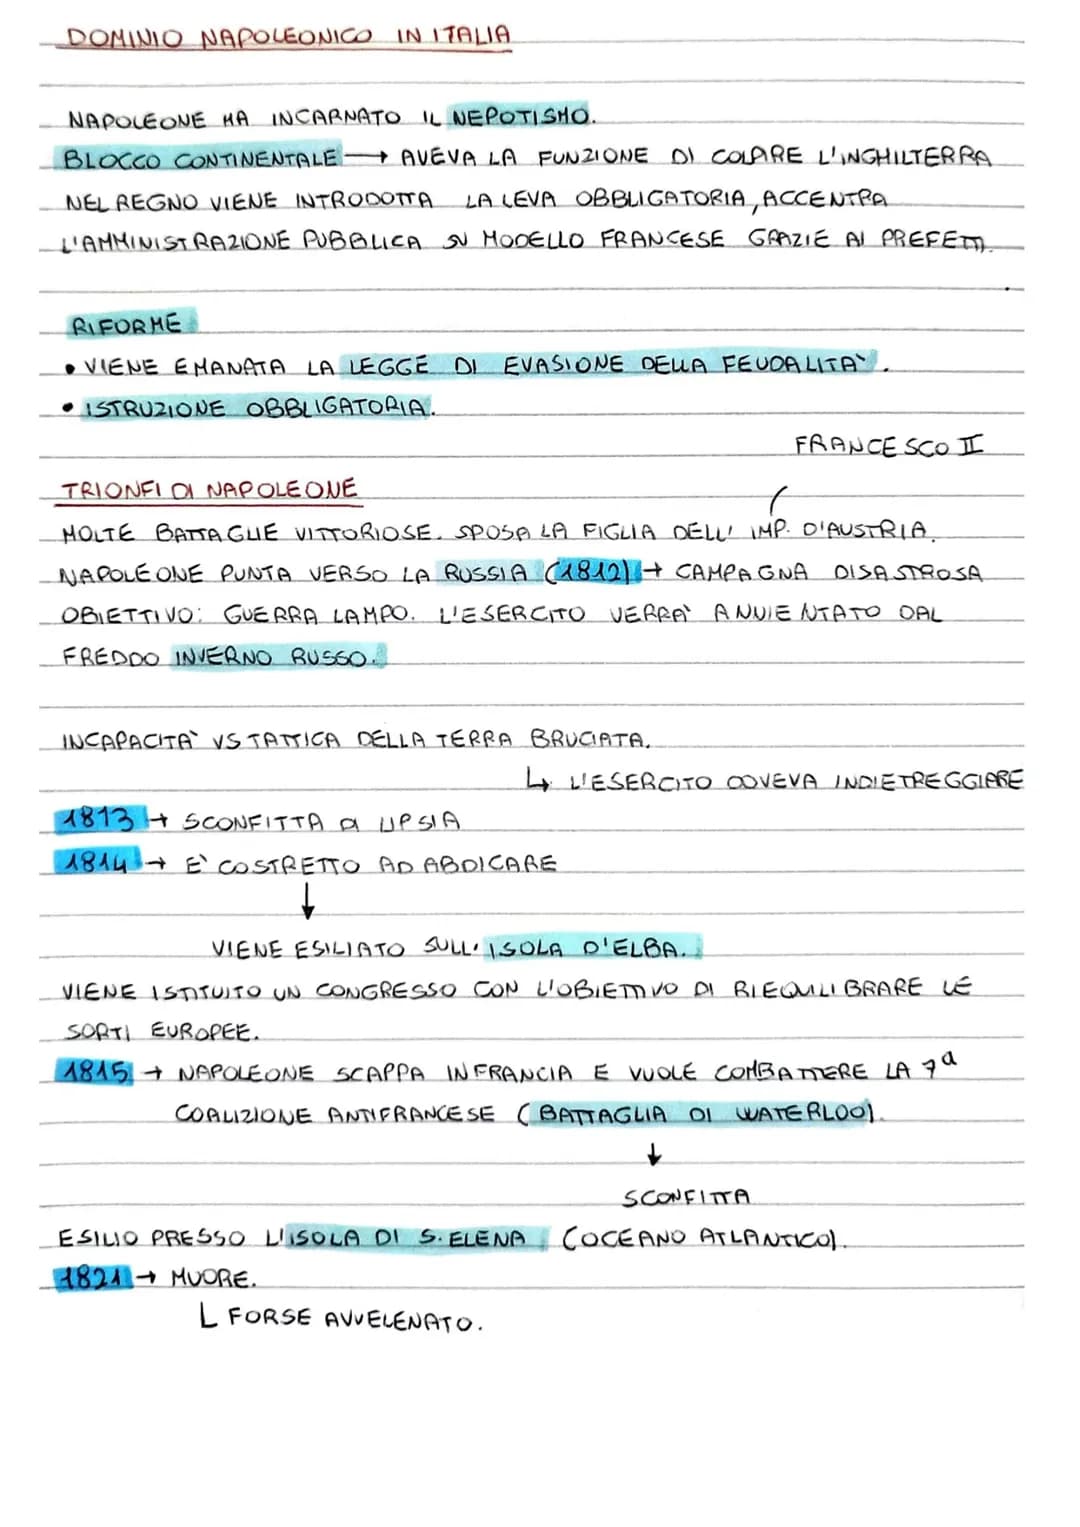 DOMINIO NAPOLEONICO IN ITALIA
NAPOLEONE HA INCARNATO IL NEPOTISMO.
BLOCCO CONTINENTALE → AVEVA LA FUNZIONE DI COLPIRE L'INGHILTERRA
NEL REGNO VIENE INTRODOTTA LA LEVA OBBLIGATORIA, ACCENTRA
L'AMMINISTRAZIONE PUBBLICA SU MODELLO FRANCESE GRAZIE AI PREFETTI.
RIFORME
• VIENE EMANATA LA LEGGE DI EVASIONE DELLA FEUDALITA'.
• ISTRUZIONE OBBLIGATORIA.
FRANCESCO II
TRIONFI DI NAPOLEONE
MOLTE BATTAGLIE VITTORIOSE. SPOSA LA FIGLIA DELL' IMP. D'AUSTRIA.
NAPOLEONE PUNTA VERSO LA RUSSIA (1812) → CAMPAGNA DISASTROSA
OBIETTIVO: GUERRA LAMPO. L'ESERCITO VERRA' ANNIENTATO DAL
FREDDO INVERNO RUSSO.
INCAPACITA' VS TATTICA DELLA TERRA BRUCIATA.
↳ L'ESERCITO DOVEVA INDIETREGGIARE
1813 → SCONFITTA DI LIPSIA
1814 → E' COSTRETTO AD ABDICARE
↓
VIENE ESILIATO SULL' ISOLA D'ELBA.
VIENE ISTITUITO UN CONGRESSO CON L'OBIETTIVO DI RIEQUILIBRARE LE
SORTI EUROPEE.
1815 → NAPOLEONE SCAPPA IN FRANCIA E VUOLE COMBATTERE LA 7ª
COALIZIONE ANTIFRANCESE (BATTAGLIA DI WATERLOO).
↓
SCONFITTA
ESILIO PRESSO L'ISOLA DI S. ELENA (OCEANO ATLANTICO).
1821 → MUORE.
L FORSE AVVELENATO.